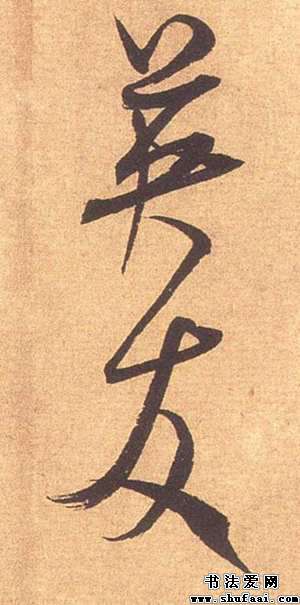 英友
书法爱网
www.shufaai.com